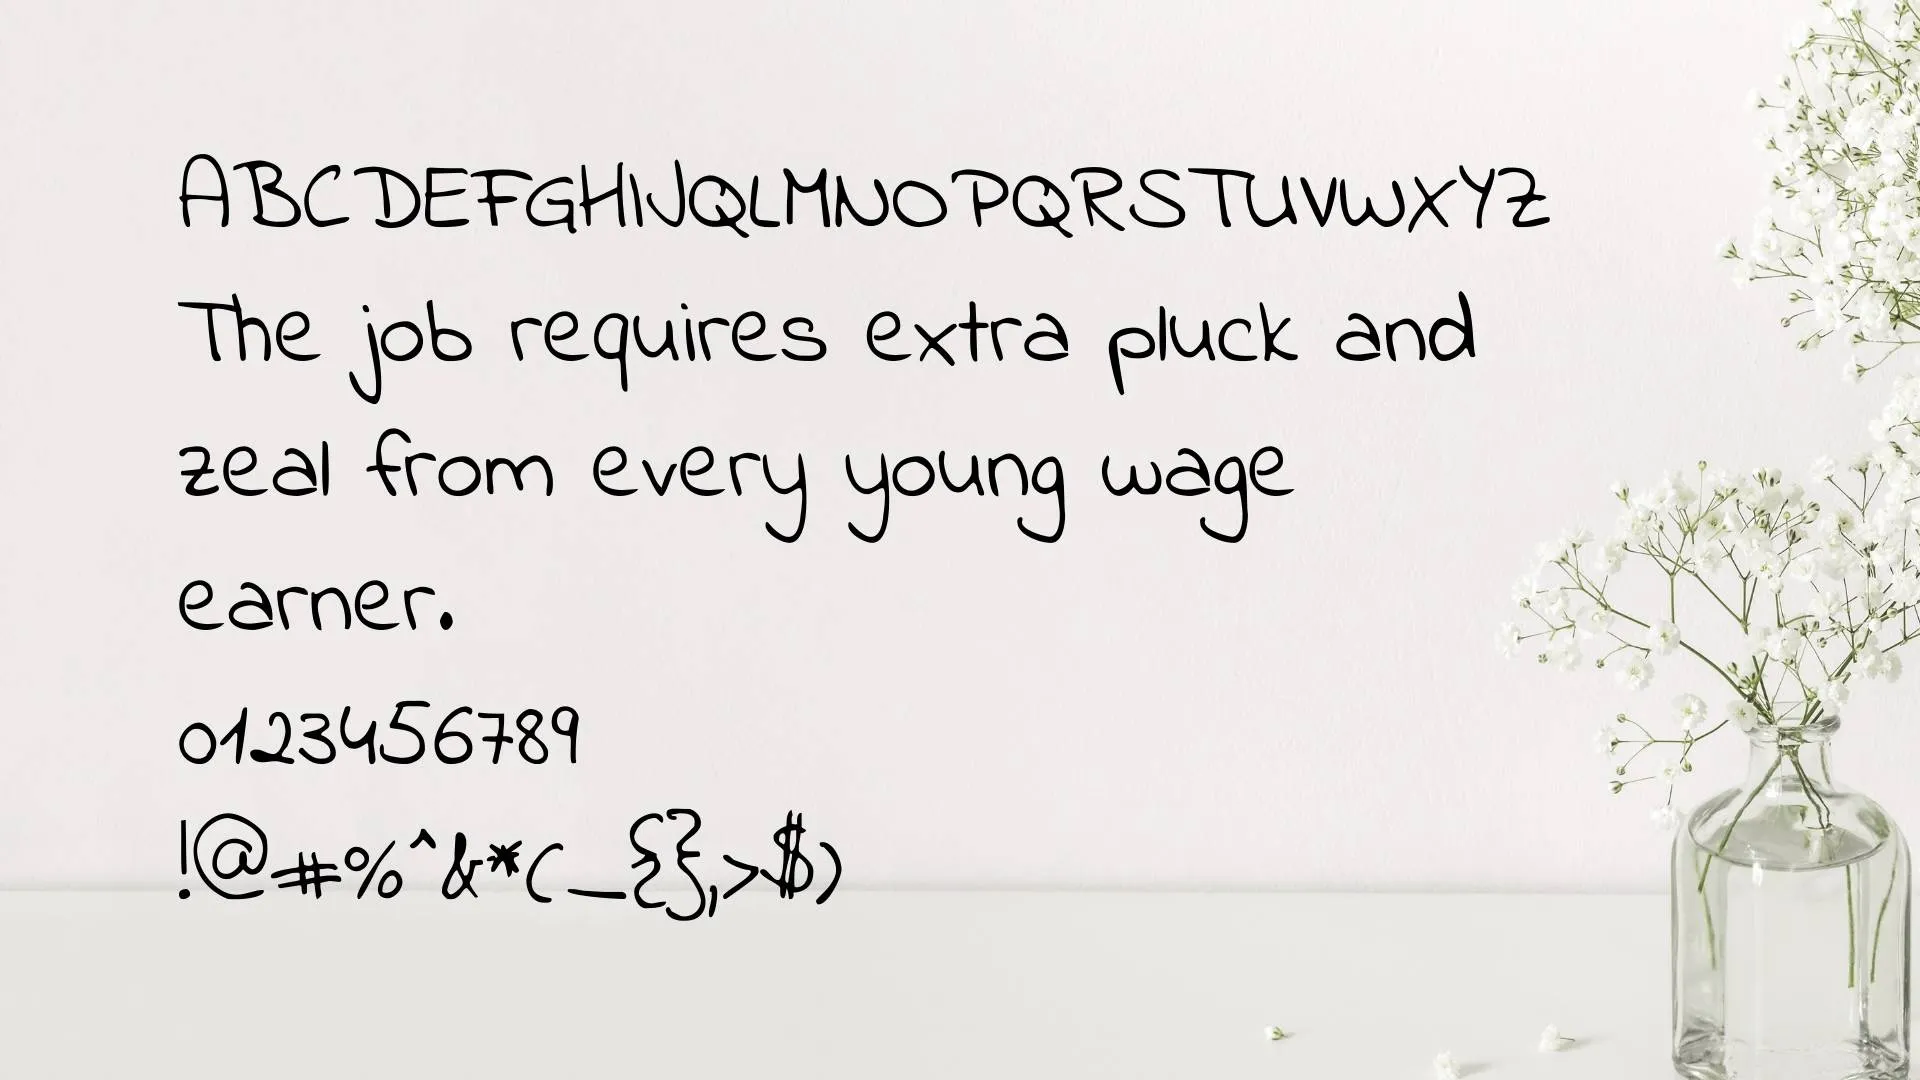 ABCDEFGHIJQLMNOPQRSTUVWXYZ
The job requires extra pluck and
zeal from every young wage
earner.
0123456789
!@#%^&*(_{},>$)